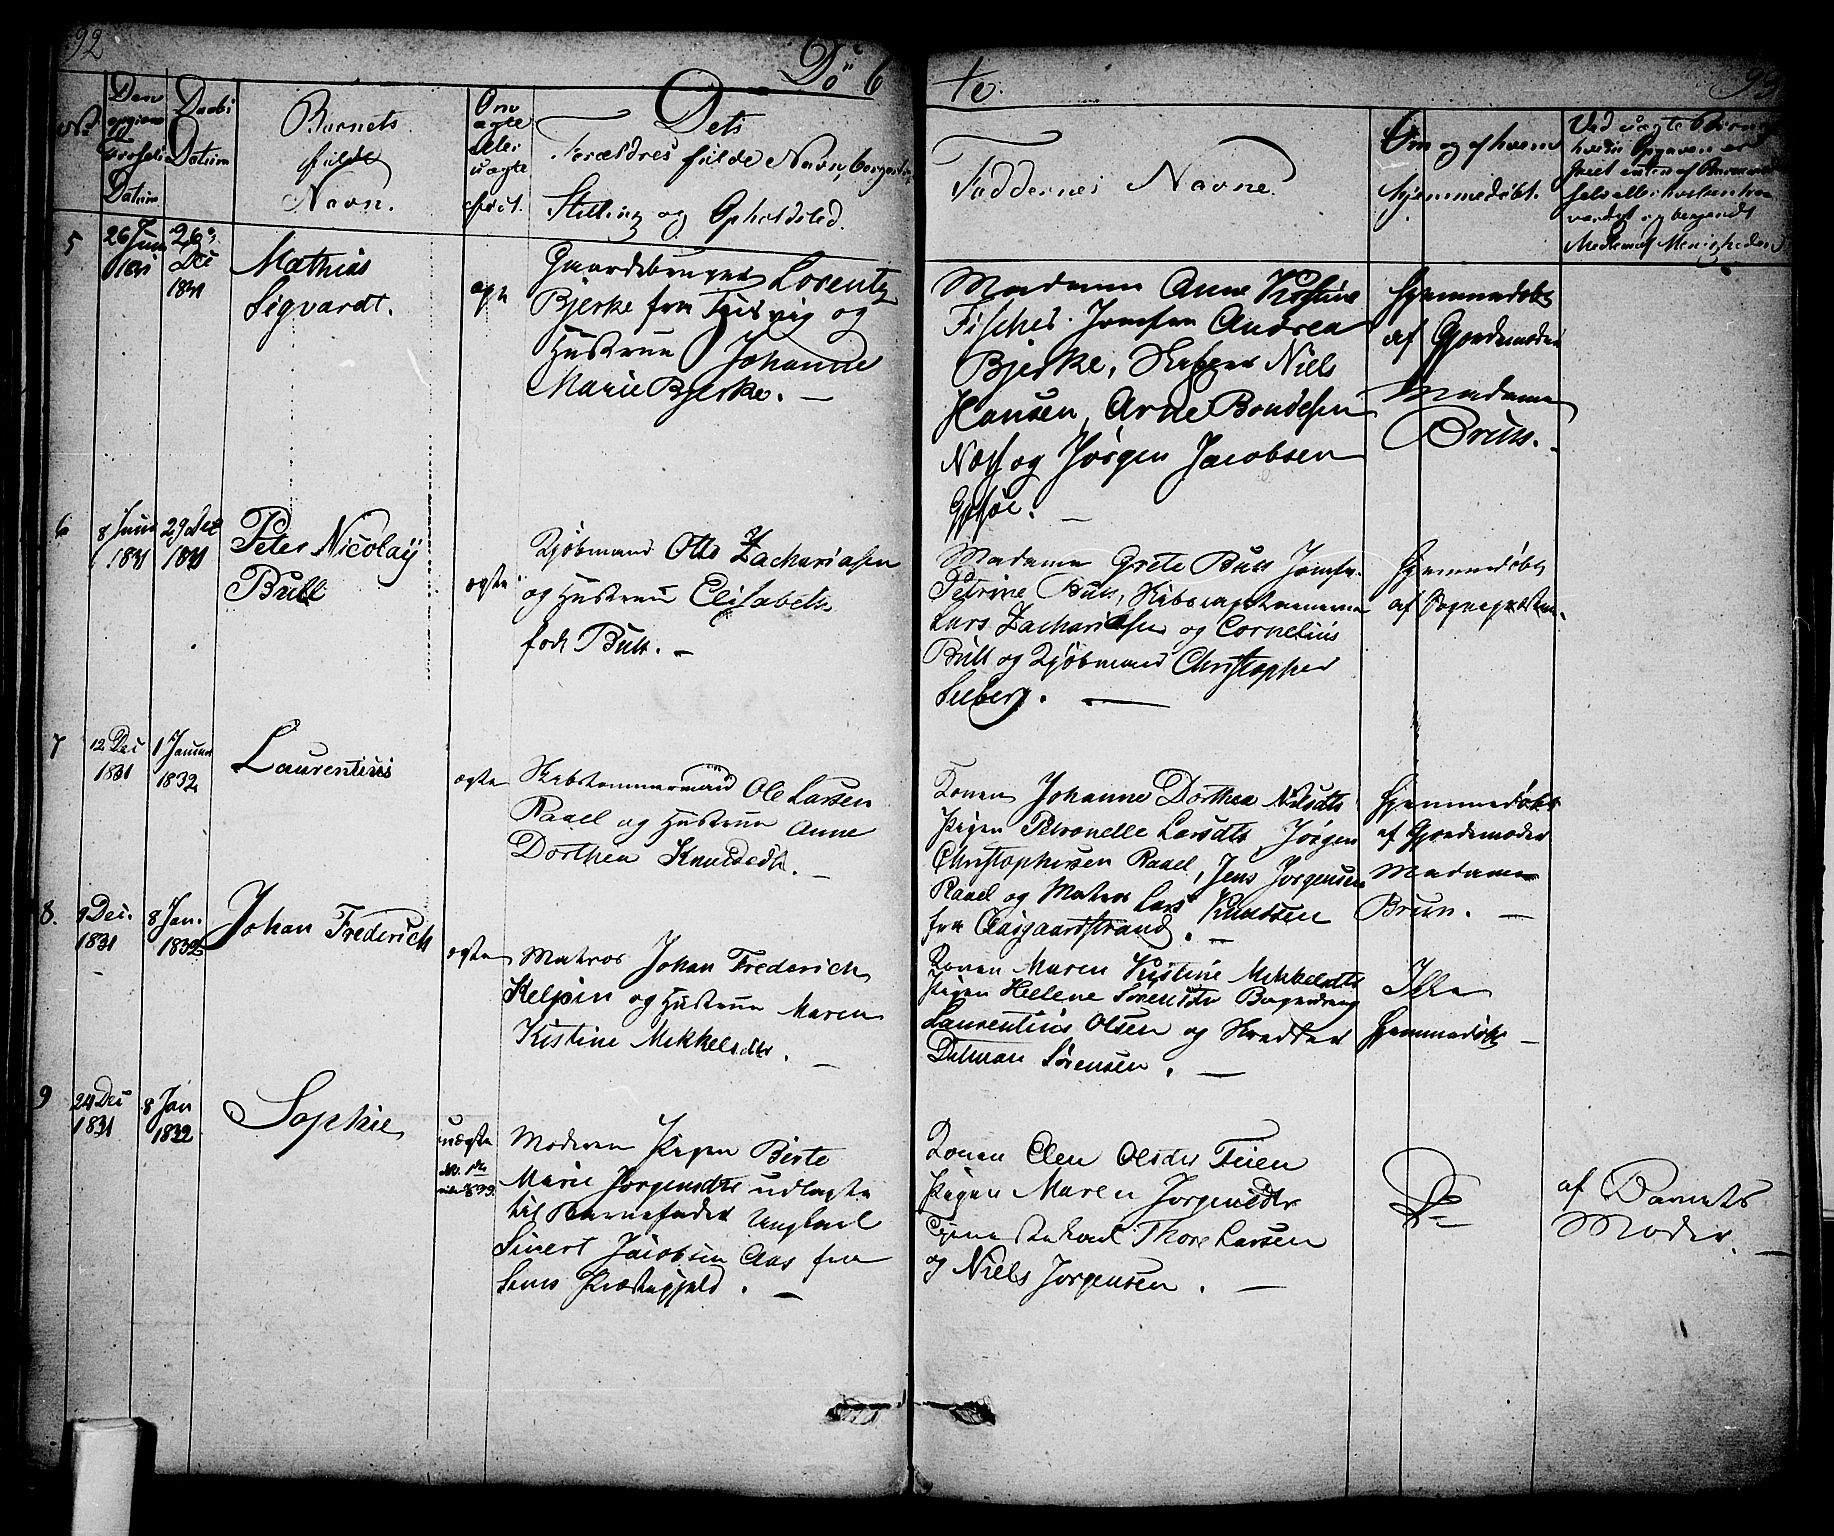 92
Dö
te.
99
No
Den
Daabs
Datum
Datum
Barnets
fulde
Navn.
Om
ægte
eller
uægte
født.
Dets
Forældres fulde Navn
Stilling og Opholdsted.
Faddernes Navne.
Om og af hvem
hjemmedøbt.
Ved uægte Børn
5
26 Juni
1831
26
Dec
1831
Mathias
Sigvardt.
ægte
Gaardsbruger Lorentz
Bjerke fra og
Hustrue Johanne
Marie Bjerke. —
Madame Anne Kistine
Fischer. Jomfru Andrea
Bjerke, Niels
Hansen, Arne Bondesen
Næss og Jørgen Jacobsen
Hjemmedøbt
af Gjordemoder
Madame
Brun.
6
8 Juni
1831
29 Dec
1831
Peter Nicolaÿ
Bull
ægte
Kjøbmand Otto Zachariasen
og Hustrue Elisabeth
født Bull. —
Madame Grete Bull Jomfr.
Petrine Bull,
Lars Zachariasen og Cornelius
Bull og Kjøbmand Christopher
Seeberg. —
Hjemmedøbt
af Sognepresten.
7
12 Dec
1831
1 Januar
1832
Laurentius
ægte
Skibstømmermand Ole Larsen
Raael og Hustrue Anne
Dorthea Knudsdtr. —
Konen Johanne Dorthea Nilsdtr
Pigen Petronelle Larsdtr, Jørgen
Christophersen Raael, Jens Jørgensen
Raael og Matros Lars Knudsen
fra Aasgaardstrand. —
Hjemmedøbt
af Gjordemoder
Madame
Brun. —
8.
9 Dec.
1831
8 Jan.
1832
Johan Frederich
ægte
Matros Johan Frederich
Kelpin og Hustrue Maren
Kistine Mikkelsdtr. —
Konen Maren Kistine Mikkelsdtr
Pigen Hellene Sørensdtr
Laurentius Olsen og
Ditman Sørensen. —
Ikke
hjemmedøbt —
9
24 Dec
1831
8 Jan
1832
Sophie
uægte
Moderen Pigen Birte
Marie Jørgensdtr udlagte
til Barnefader Ungkarl
Sivert Jacobsen Aas fra
Sems Præstegjeld. —
Konen Elen Olsdtr Feien
Pigen Maren Jørgensdtr
Thore Larsen
og Niels Jørgensen. —
Do
af Barnets
Moder. —